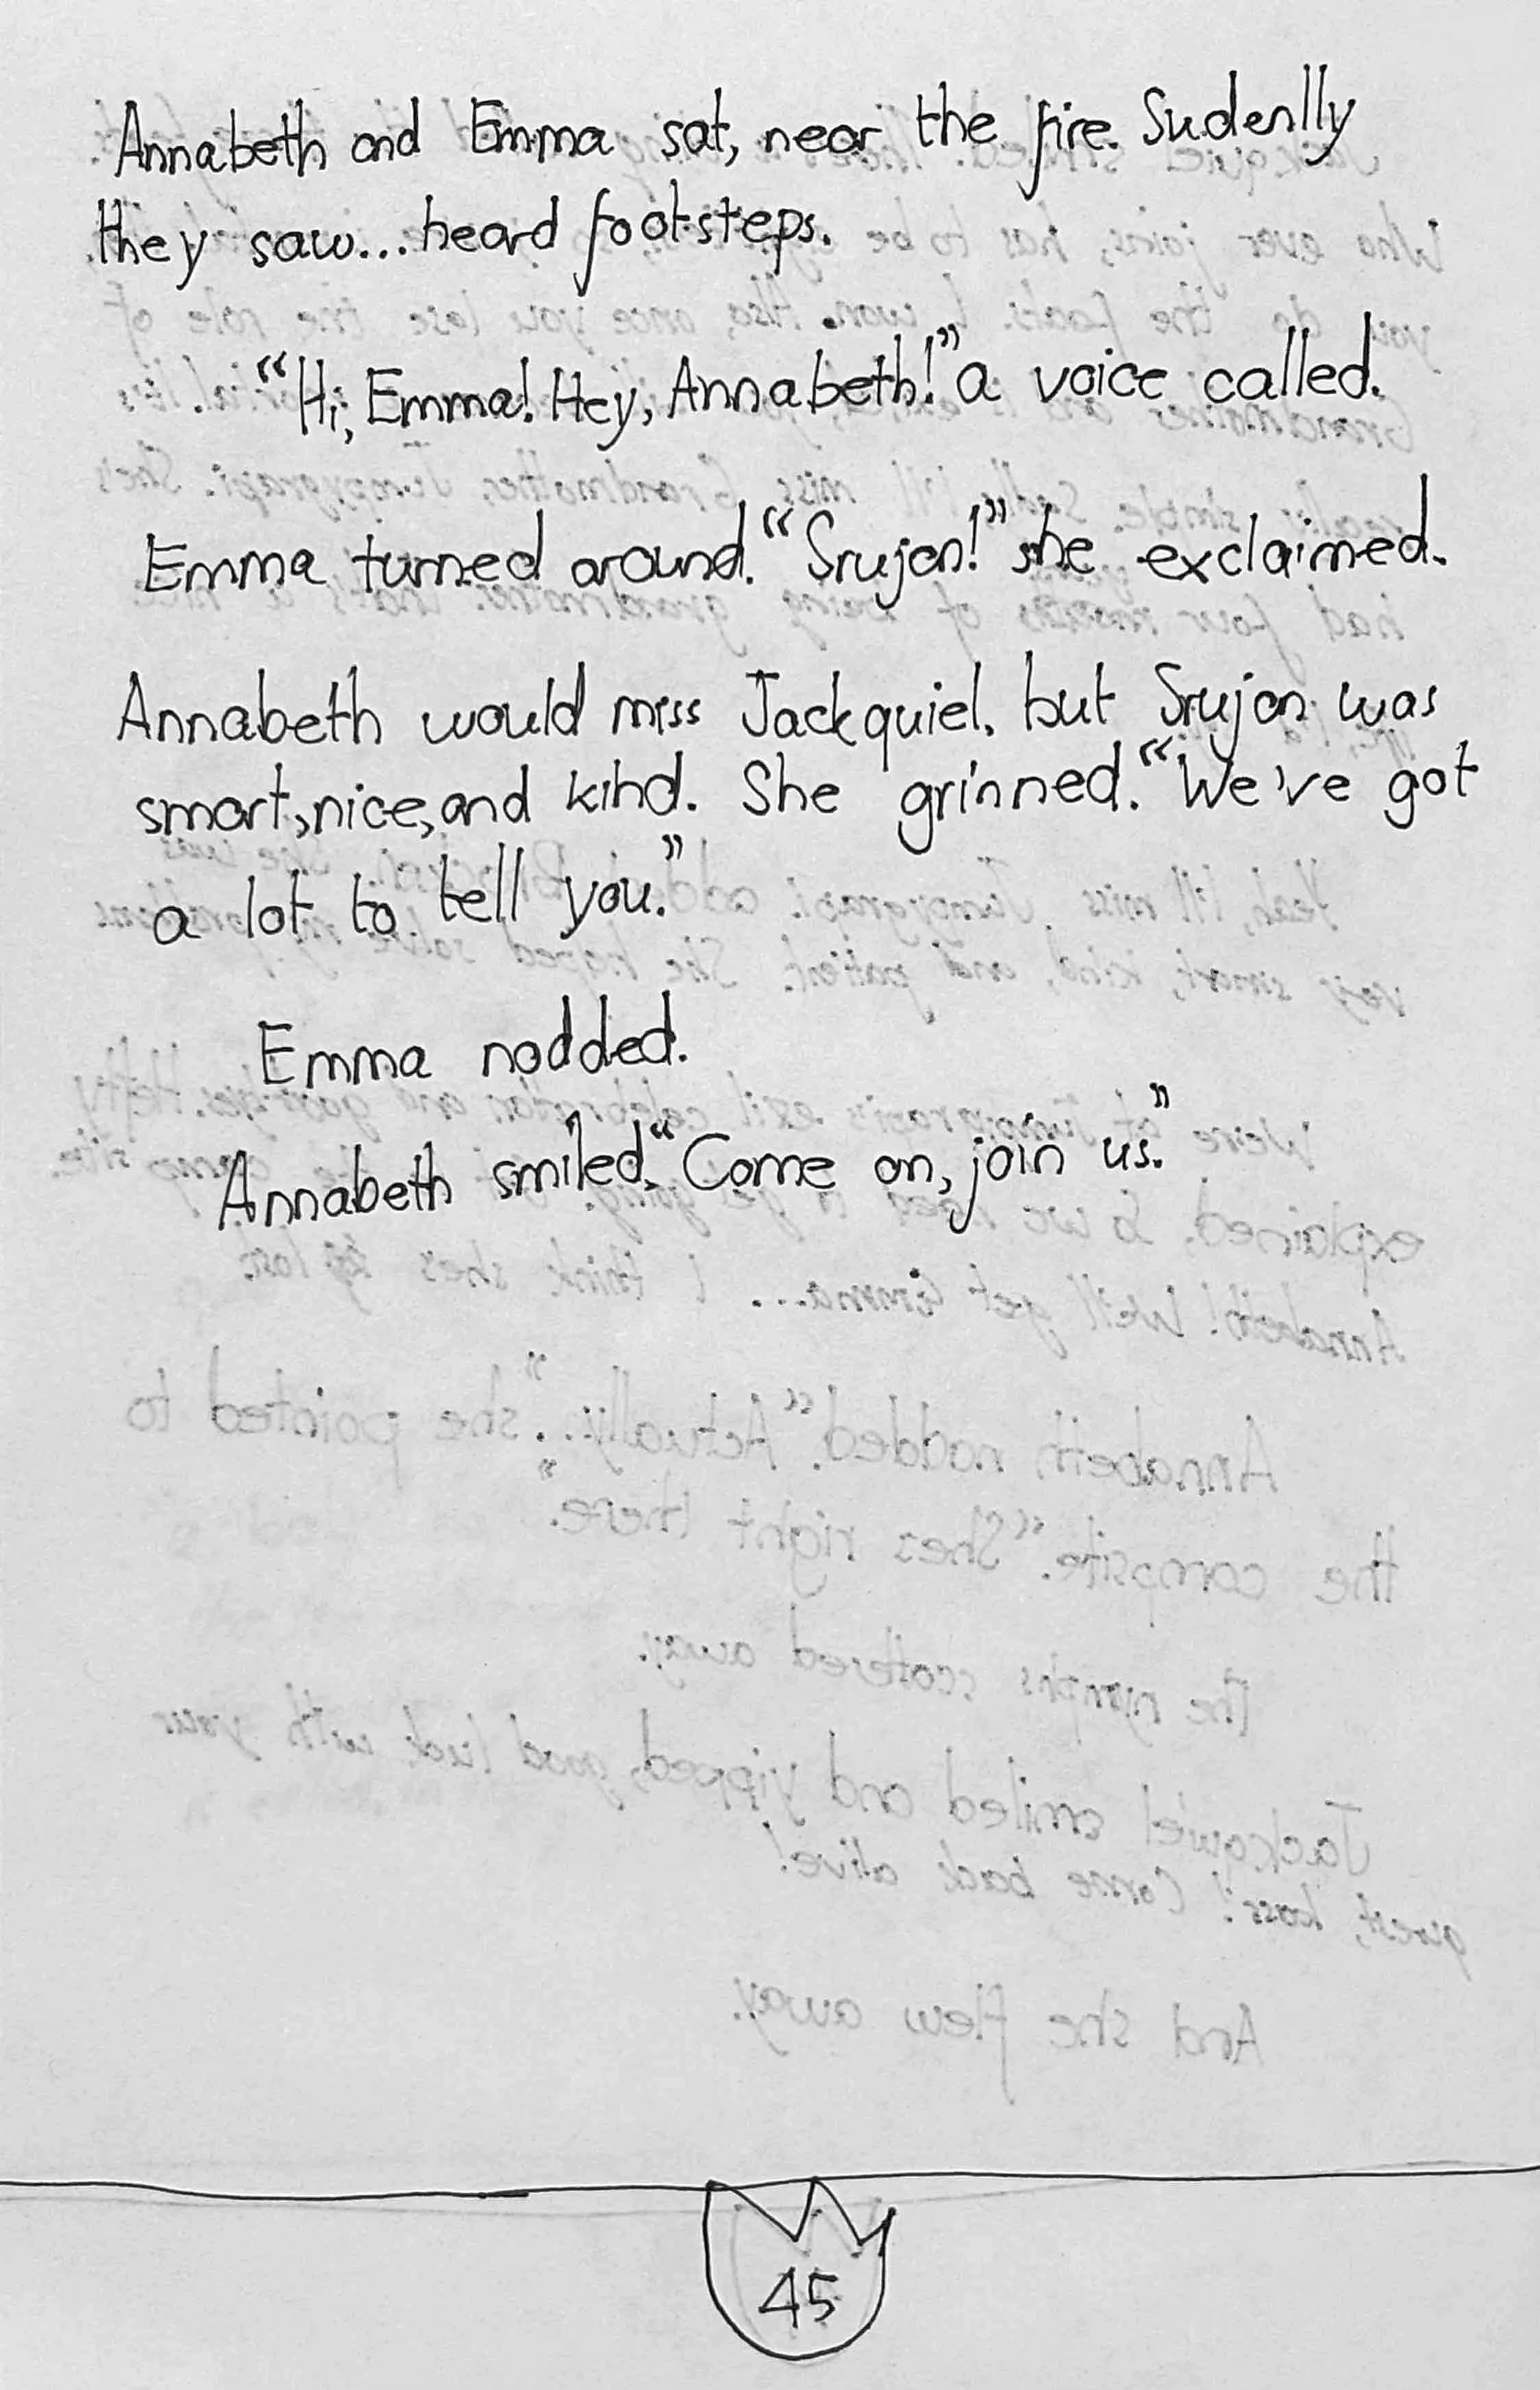 Annabeth and Emma sat, near the fire. Sudenlly
they saw... heard footsteps.
“Hi, Emma! Hey, Annabeth!” a voice called.
Emma turned around. “Srujan!” she exclaimed.
Annabeth would miss Jackquiel, but Srujan was
smart, nice, and kind. She grinned. “We've got
a lot to tell you.”
Emma nodded.
Annabeth smiled. “Come on, join us.”
45